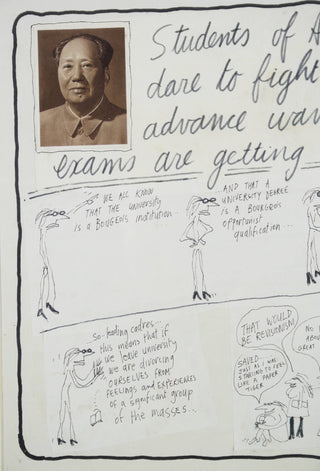 Students of A
dare to fight
advance wav
exams are getting
WE ALL KNOW
THAT THE university
is a BOUGEOIS institution..
..AND THAT A
UNIVERSITY DEGREE
IS A BOURGEOIS
opportunist
qualification...
So leading cadres..
this means that if
we leave university
we are divorcing
OURSELVES FROM
FEELINGS and EXPERIENCES
of a significant group
of the masses...
THAT WOULD
BE REVISIONISM!
SAVED...
JUST AS I WAS
STARTING TO FEEL
LIKE A PAPER
TIGER
No
ABOU
GREAT